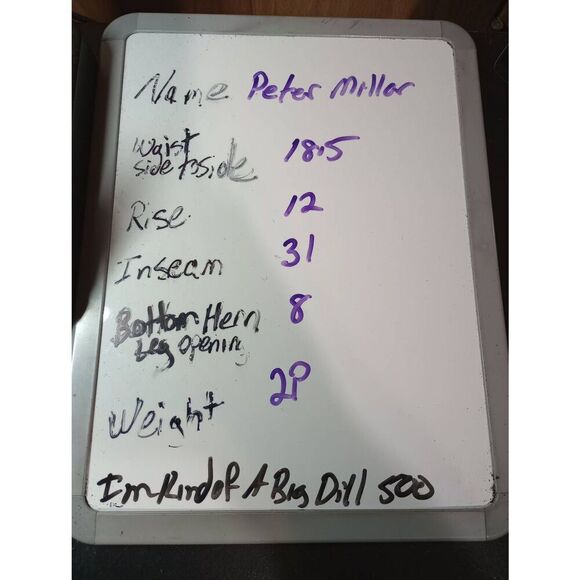 Name Peter Millar
Waist
side to side 18.5
Rise 12
Inseam 31
Bottom Hem 8
Leg Opening
Weight 2P
Im Kind of A Big Dill 500